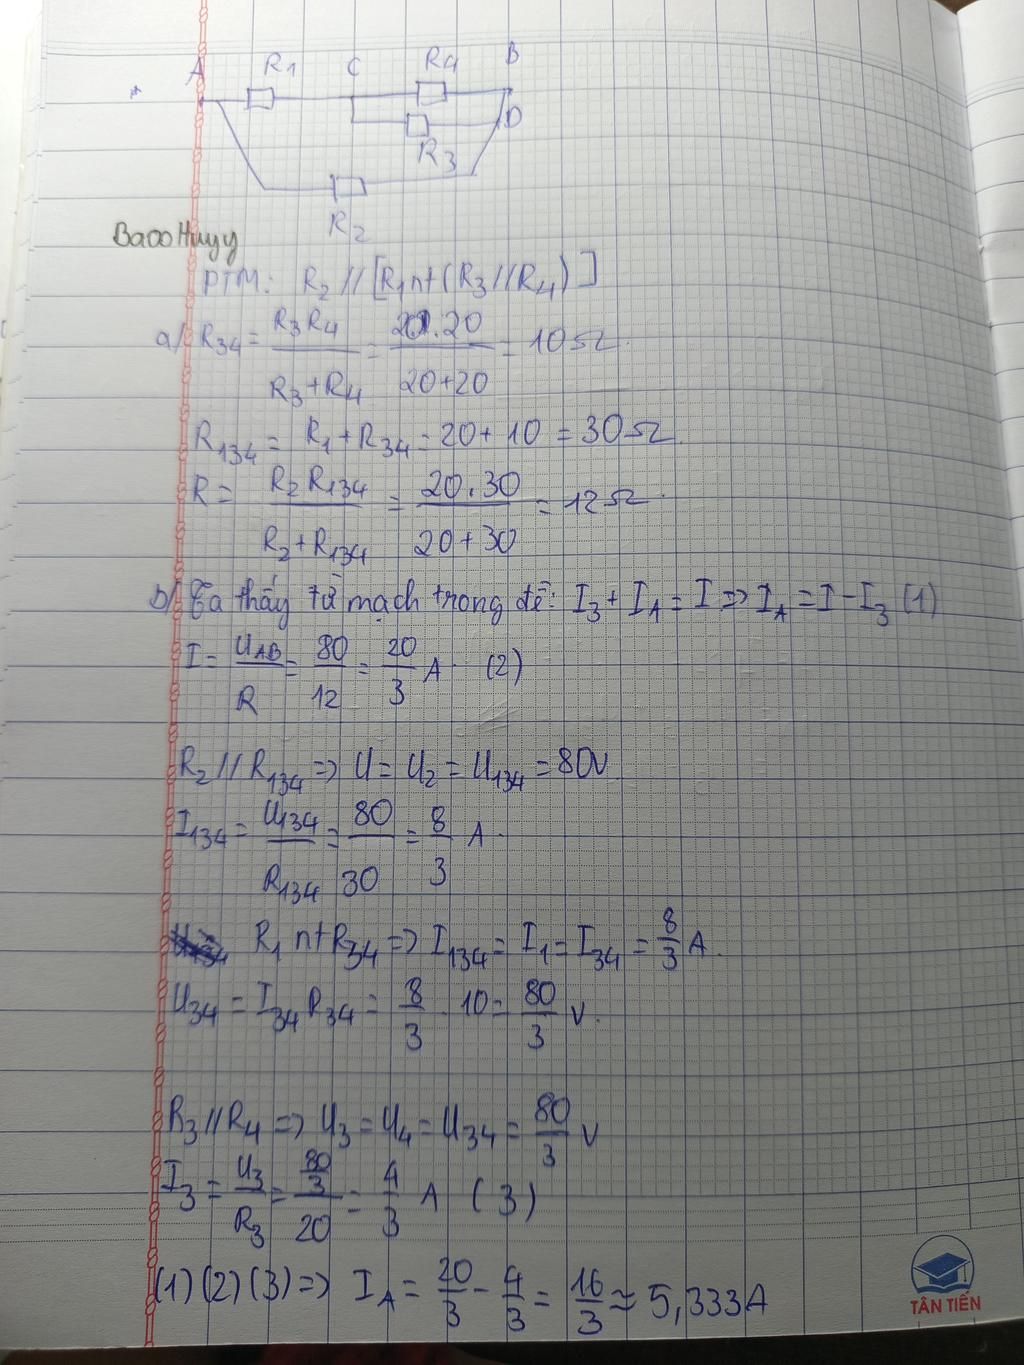 A R1 C R4 B
D
R3
R2
BaooHuyy
PTM: R2 // [R1 nt (R3 // R4)]
a/ R34 = R3R4 / R3+R4 = 20.20 / 20+20 = 10Ω.
R134 = R1 + R34 = 20 + 10 = 30Ω.
R = R2R134 / R2+R134 = 20.30 / 20+30 = 12Ω.
b/ Ta thấy từ mạch trong đề: I3 + IA = I => IA = I - I3 (1)
I = UAB / R = 80 / 12 = 20/3 A (2)
R2 // R134 => U = U2 = U134 = 80V.
I134 = U134 / R134 = 80 / 30 = 8/3 A.
R1 nt R34 => I134 = I1 = I34 = 8/3 A.
U34 = I34 R34 = 8/3 . 10 = 80/3 V.
R3 // R4 => U3 = U4 = U34 = 80/3 V
I3 = U3 / R3 = 80/3 / 20 = 4/3 A (3)
(1) (2) (3) => IA = 20/3 - 4/3 = 16/3 ≈ 5,333A
TÂN TIẾN